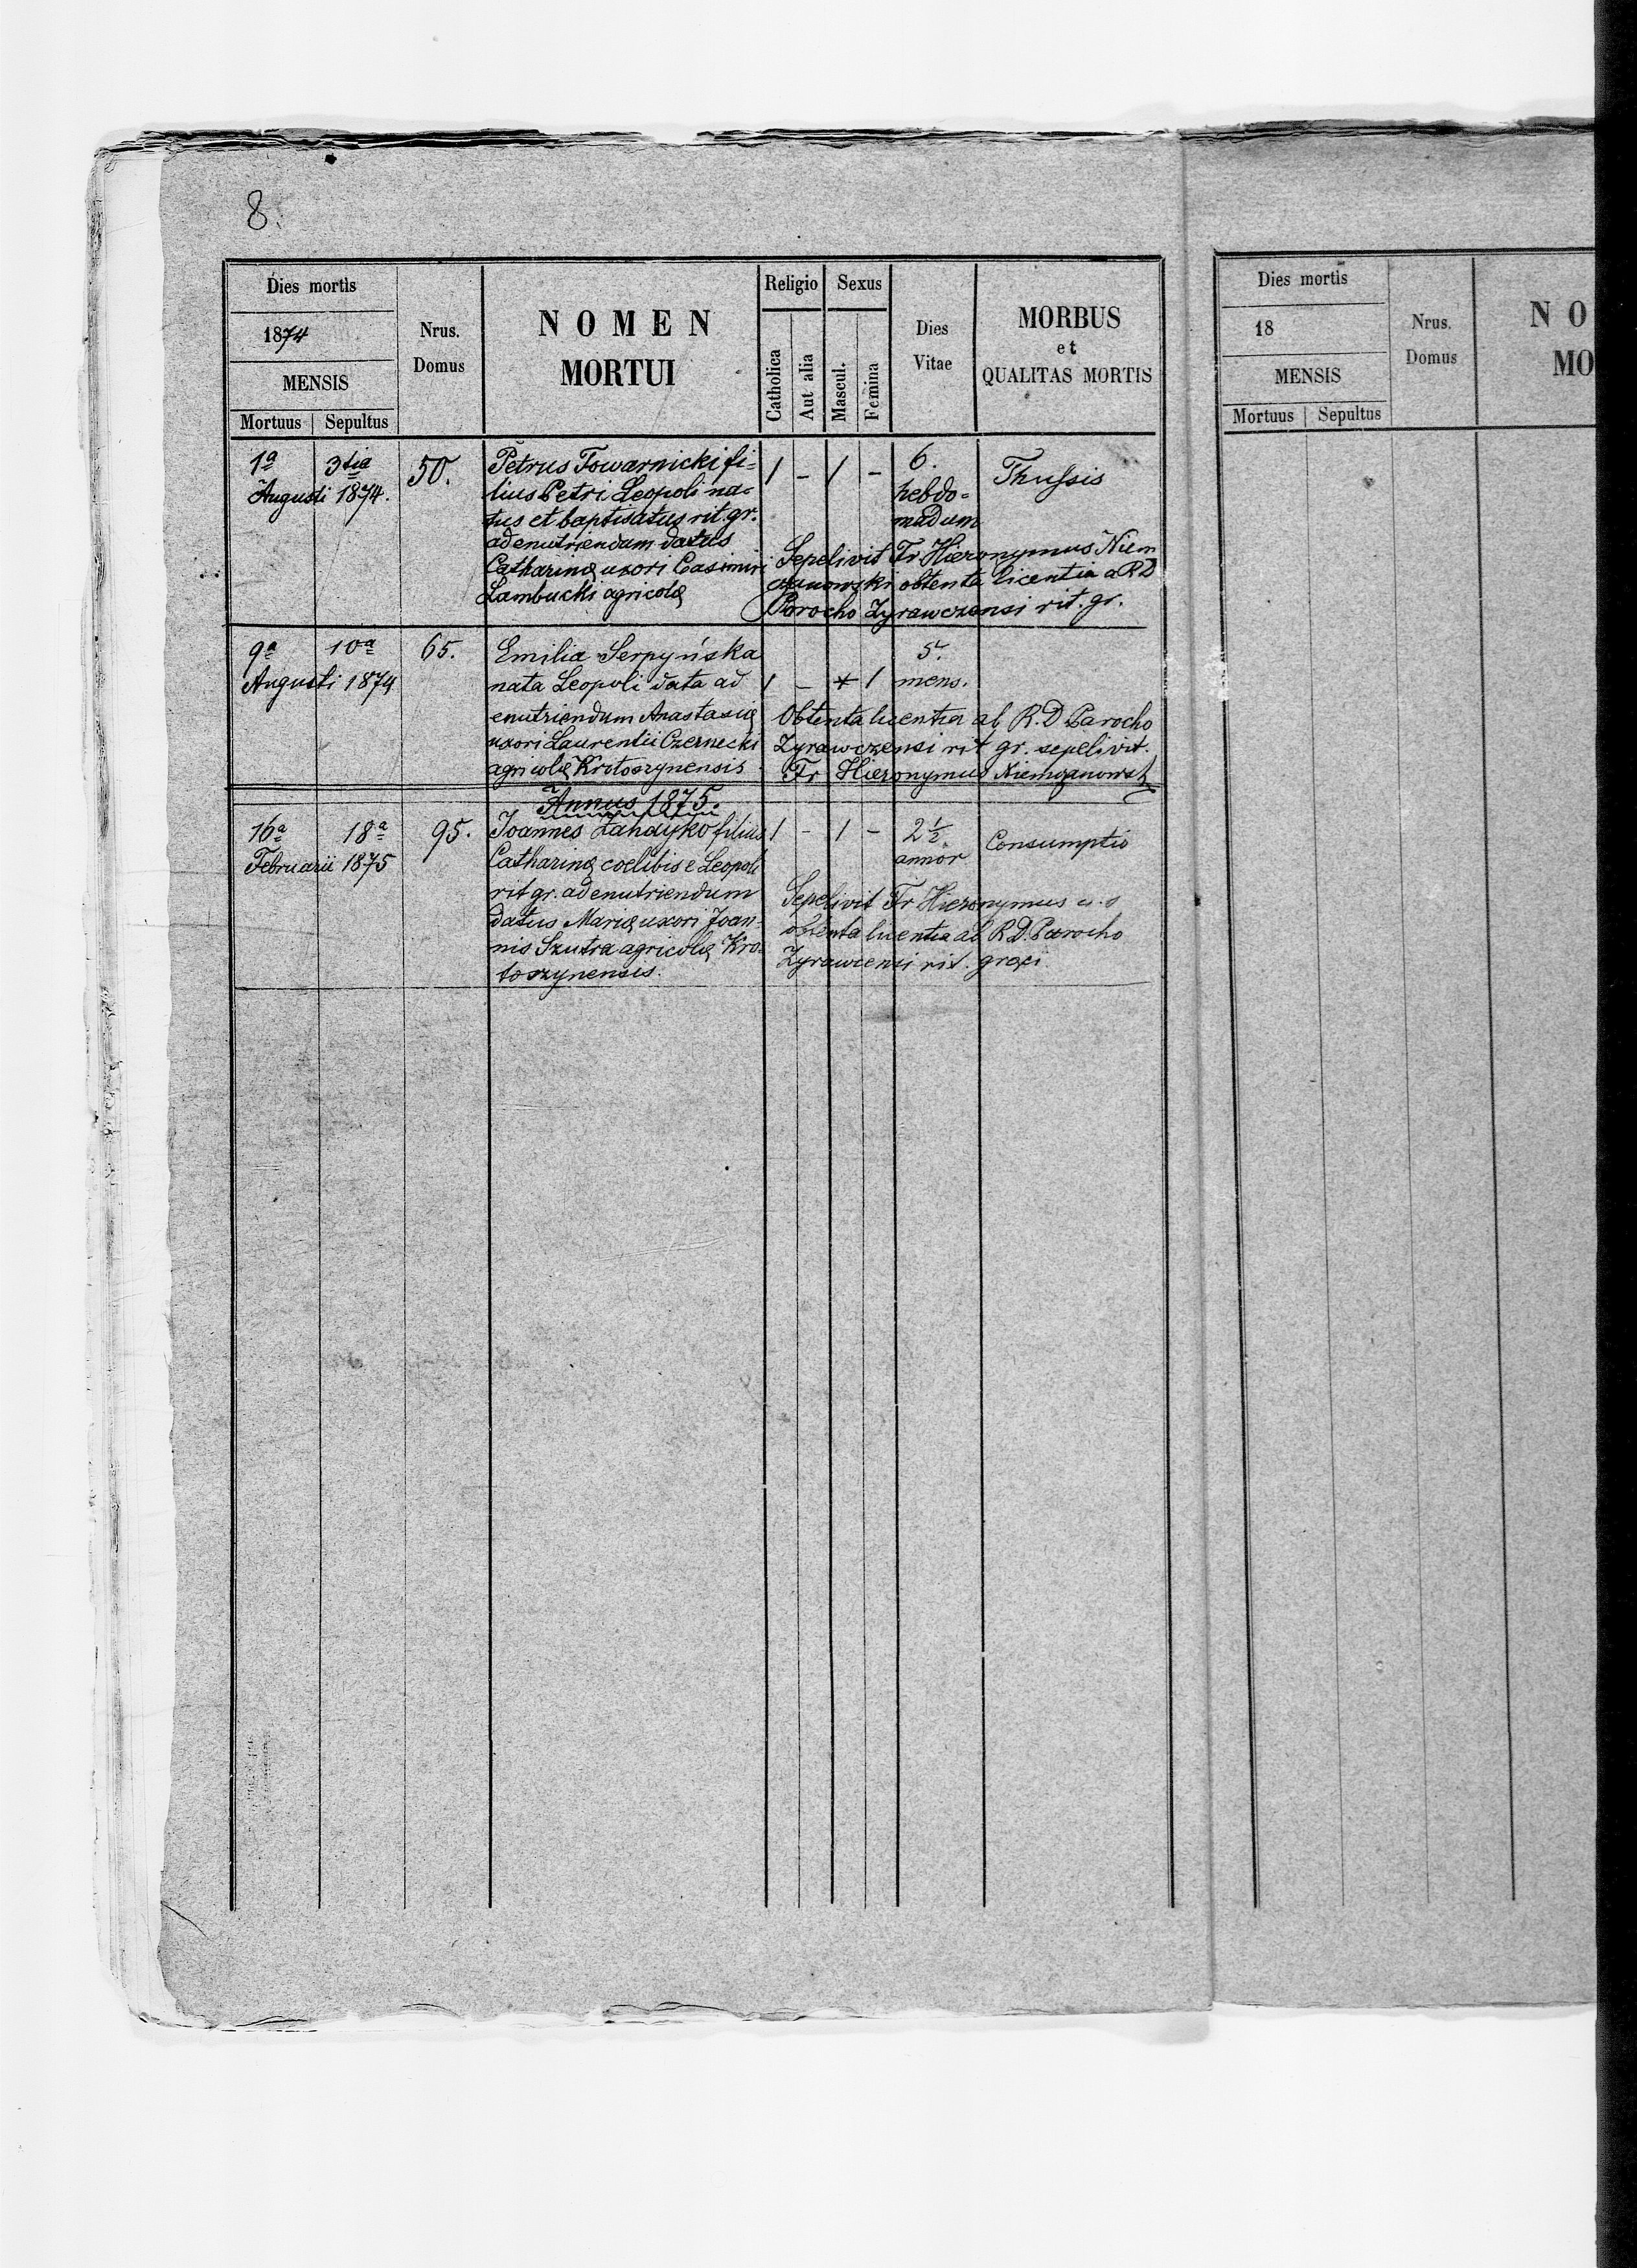 8.
Dies mortis
1874
MENSIS
Mortuus Sepultus
Nrus.
Domus
NOMEN
MORTUI
Religio
Catholica
Aut alia
Sexus
Mascul.
Femina
Dies
Vitae
MORBUS
et
QUALITAS MORTIS
1ª 3tia
Augusti 1874.
50.
Petrus Towarnicki fi=
lius Petri Leopoli na=
tus et baptisatus rit. gr.
ad enutriendum datus
Catharinæ uxori Casimiri
Lambucki agricolæ
1 - 1 -
6.
hebdo=
madum
Thussis
Sepelivit Fr. Hieronymus Niem
czanowski obtenta licentia a RD
Parocho Zyrawczensi rit. gr.
9ª 10ª
Augusti 1874
65.
Emilia Serpyńska
nata Leopoli data ad
enutriendum Anastasiæ
uxori Laurentii Czernecki
agricolæ Krotoszynensis
1 - * 1
5.
mens.
Obtenta licentia ab R. D Parocho
Zyrawczensi rit gr. sepelivit.
Fr Hieronymus
Annus 1875.
16ª 18ª
Februarii 1875
95.
Joannes filius
Catharinæ coelibis e Leopoli
rit gr. ad enutriendum
datus Mariæ uxori Joan-
nis Szutra agricolæ Kro-
toszynensis.
1 - 1 -
2 ½
annor
Consumptio
Sepelivit Fr Hieronymus u. s
obtenta licentia ab R. D. Parocho
Zyrawcensi rit. græci
Dies mortis
18
MENSIS
Mortuus Sepultus
Nrus.
Domus
NO
MO